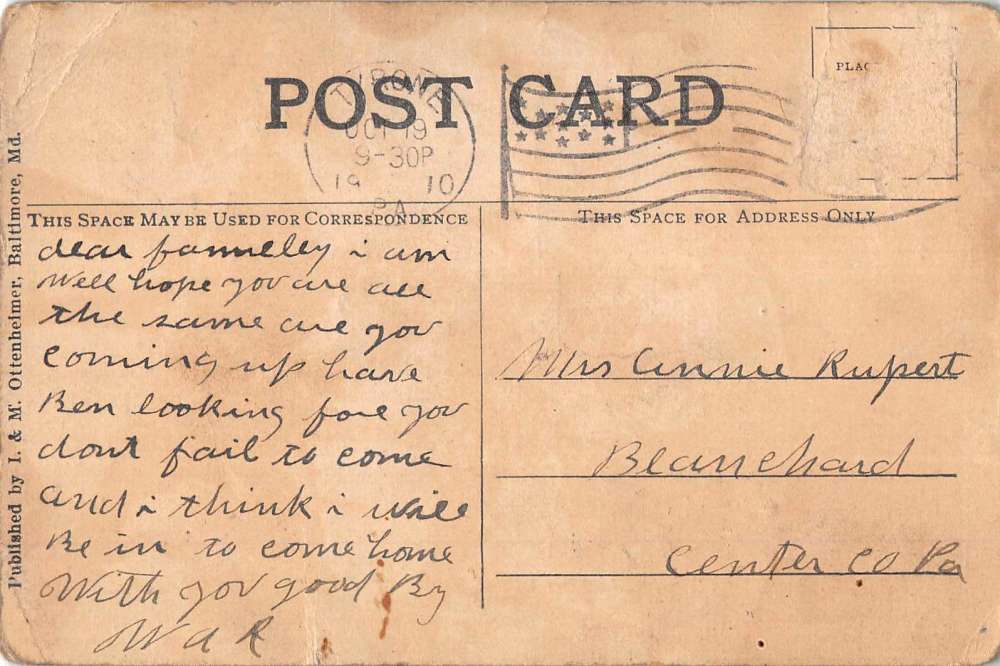 POST CARD
TYRONE
OCT 19
9-30P
19 10
PA
PLAC
Published by I. & M. Ottenheimer, Baltimore, Md.
THIS SPACE MAY BE USED FOR CORRESPONDENCE
dear fammeley i am
well hope you are all
the same are you
coming up have
Ben looking fore you
dont fail to come
and i think i will
Be in to come home
With you good By
W A R
THIS SPACE FOR ADDRESS ONLY
Mrs Annie Rupert
Blanchard
Center Co Pa